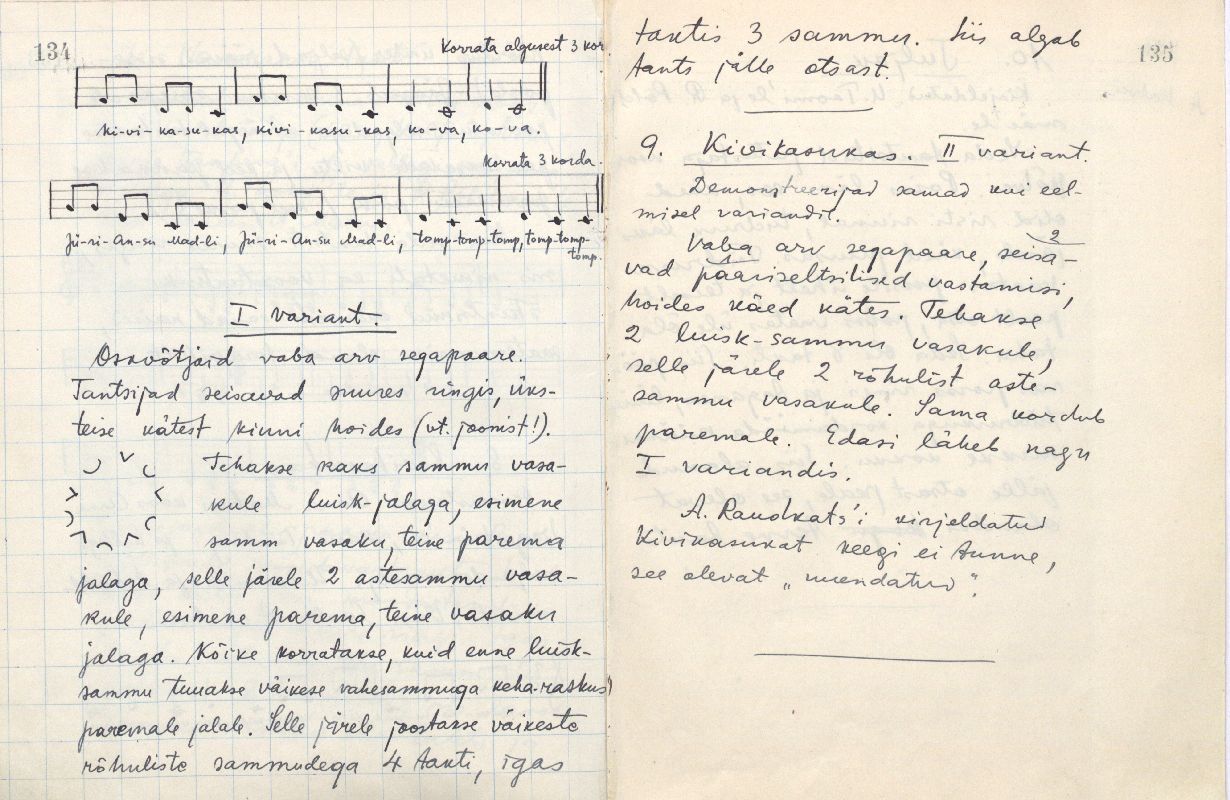 134
Korrata algusest 3 kor
Ki-vi-ka-su-kas, kivi-kasu-kas, ko-va, ko-va.
Korrata 3 korda.
Jü-ri-An-su Mad-li, Jü-ri-An-su Mad-li, tomp-tomp-tomp, tomp-tomp-
tomp.
I variant.
Osavõtjaid vaba arv segapaare.
Tantsijad seisavad suures ringis, üks-
teise kätest kinni hoides (vt. joonist!).
Tehakse kaks sammu vasa-
kule luisk-jalaga, esimene
samm vasaku, teine parema
jalaga, selle järele 2 astesammu vasa-
kule, esimene parema, teine vasaku
jalaga. Kõike korratakse, kuid enne luisk-
sammu tuuakse väikese vahesammuga keha-raskus
paremale jalale. Selle järele joostakse väikeste
rõhuliste sammudega 4 takti, igas
135
taktis 3 sammu. Siis algab
tants jälle otsast.
9. Kivikasukas. II variant.
Demonstreerijad samad kui eel-
misel variandil.
Vaba arv segapaare, seisa-
2
vad paariseltsilised vastamisi,
hoides käed kätes. Tehakse
2 luisk-sammu vasakule,
selle järele 2 rõhulist aste-
sammu vasakule. Sama kordub
paremale. Edasi läheb nagu
I variandis.
A. Raudkats'i kirjeldatud
Kivikasukat keegi ei tunne,
see olevat „uuendatud".